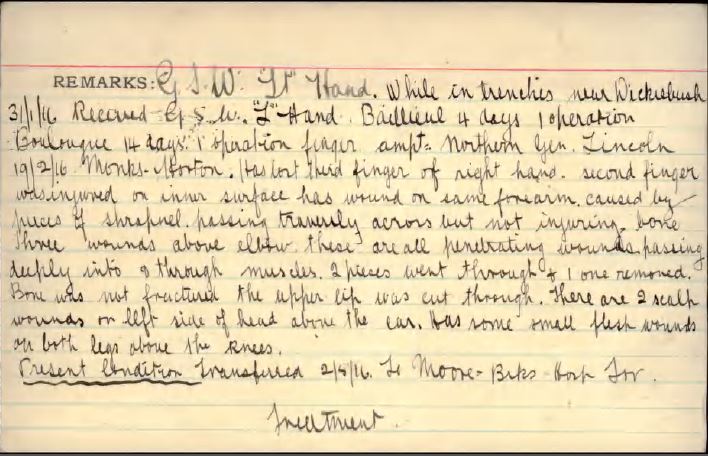 REMARKS: G.S.W. "Lt" Hand. While in trenches near Dickiebush
31/1/16 Received G.S.W. "L" Hand. Baillieul 4 days 1 operation
Boulougne 14 days. 1 operation finger ampt= Northern Gen. Lincoln
19/2/16 Monks-Morton. Has lost third finger of right hand. second finger
was injured on inner surface has wound on same forearm. caused by
pieces of shrapnel. passing across but not injuring bone
Three wounds above elbow. these are all penetrating wounds. passing
deeply into & through muscles. 2 pieces went through & 1 one removed.
Bone was not fractured the upper lip was cut through. There are 2 scalp
wounds on left side of head above the ear. Has some small flesh wounds
on both legs above the knees.
Present Condition Transferred 2/5/16. To Moore-Bks-Hosp For.
Treatment.